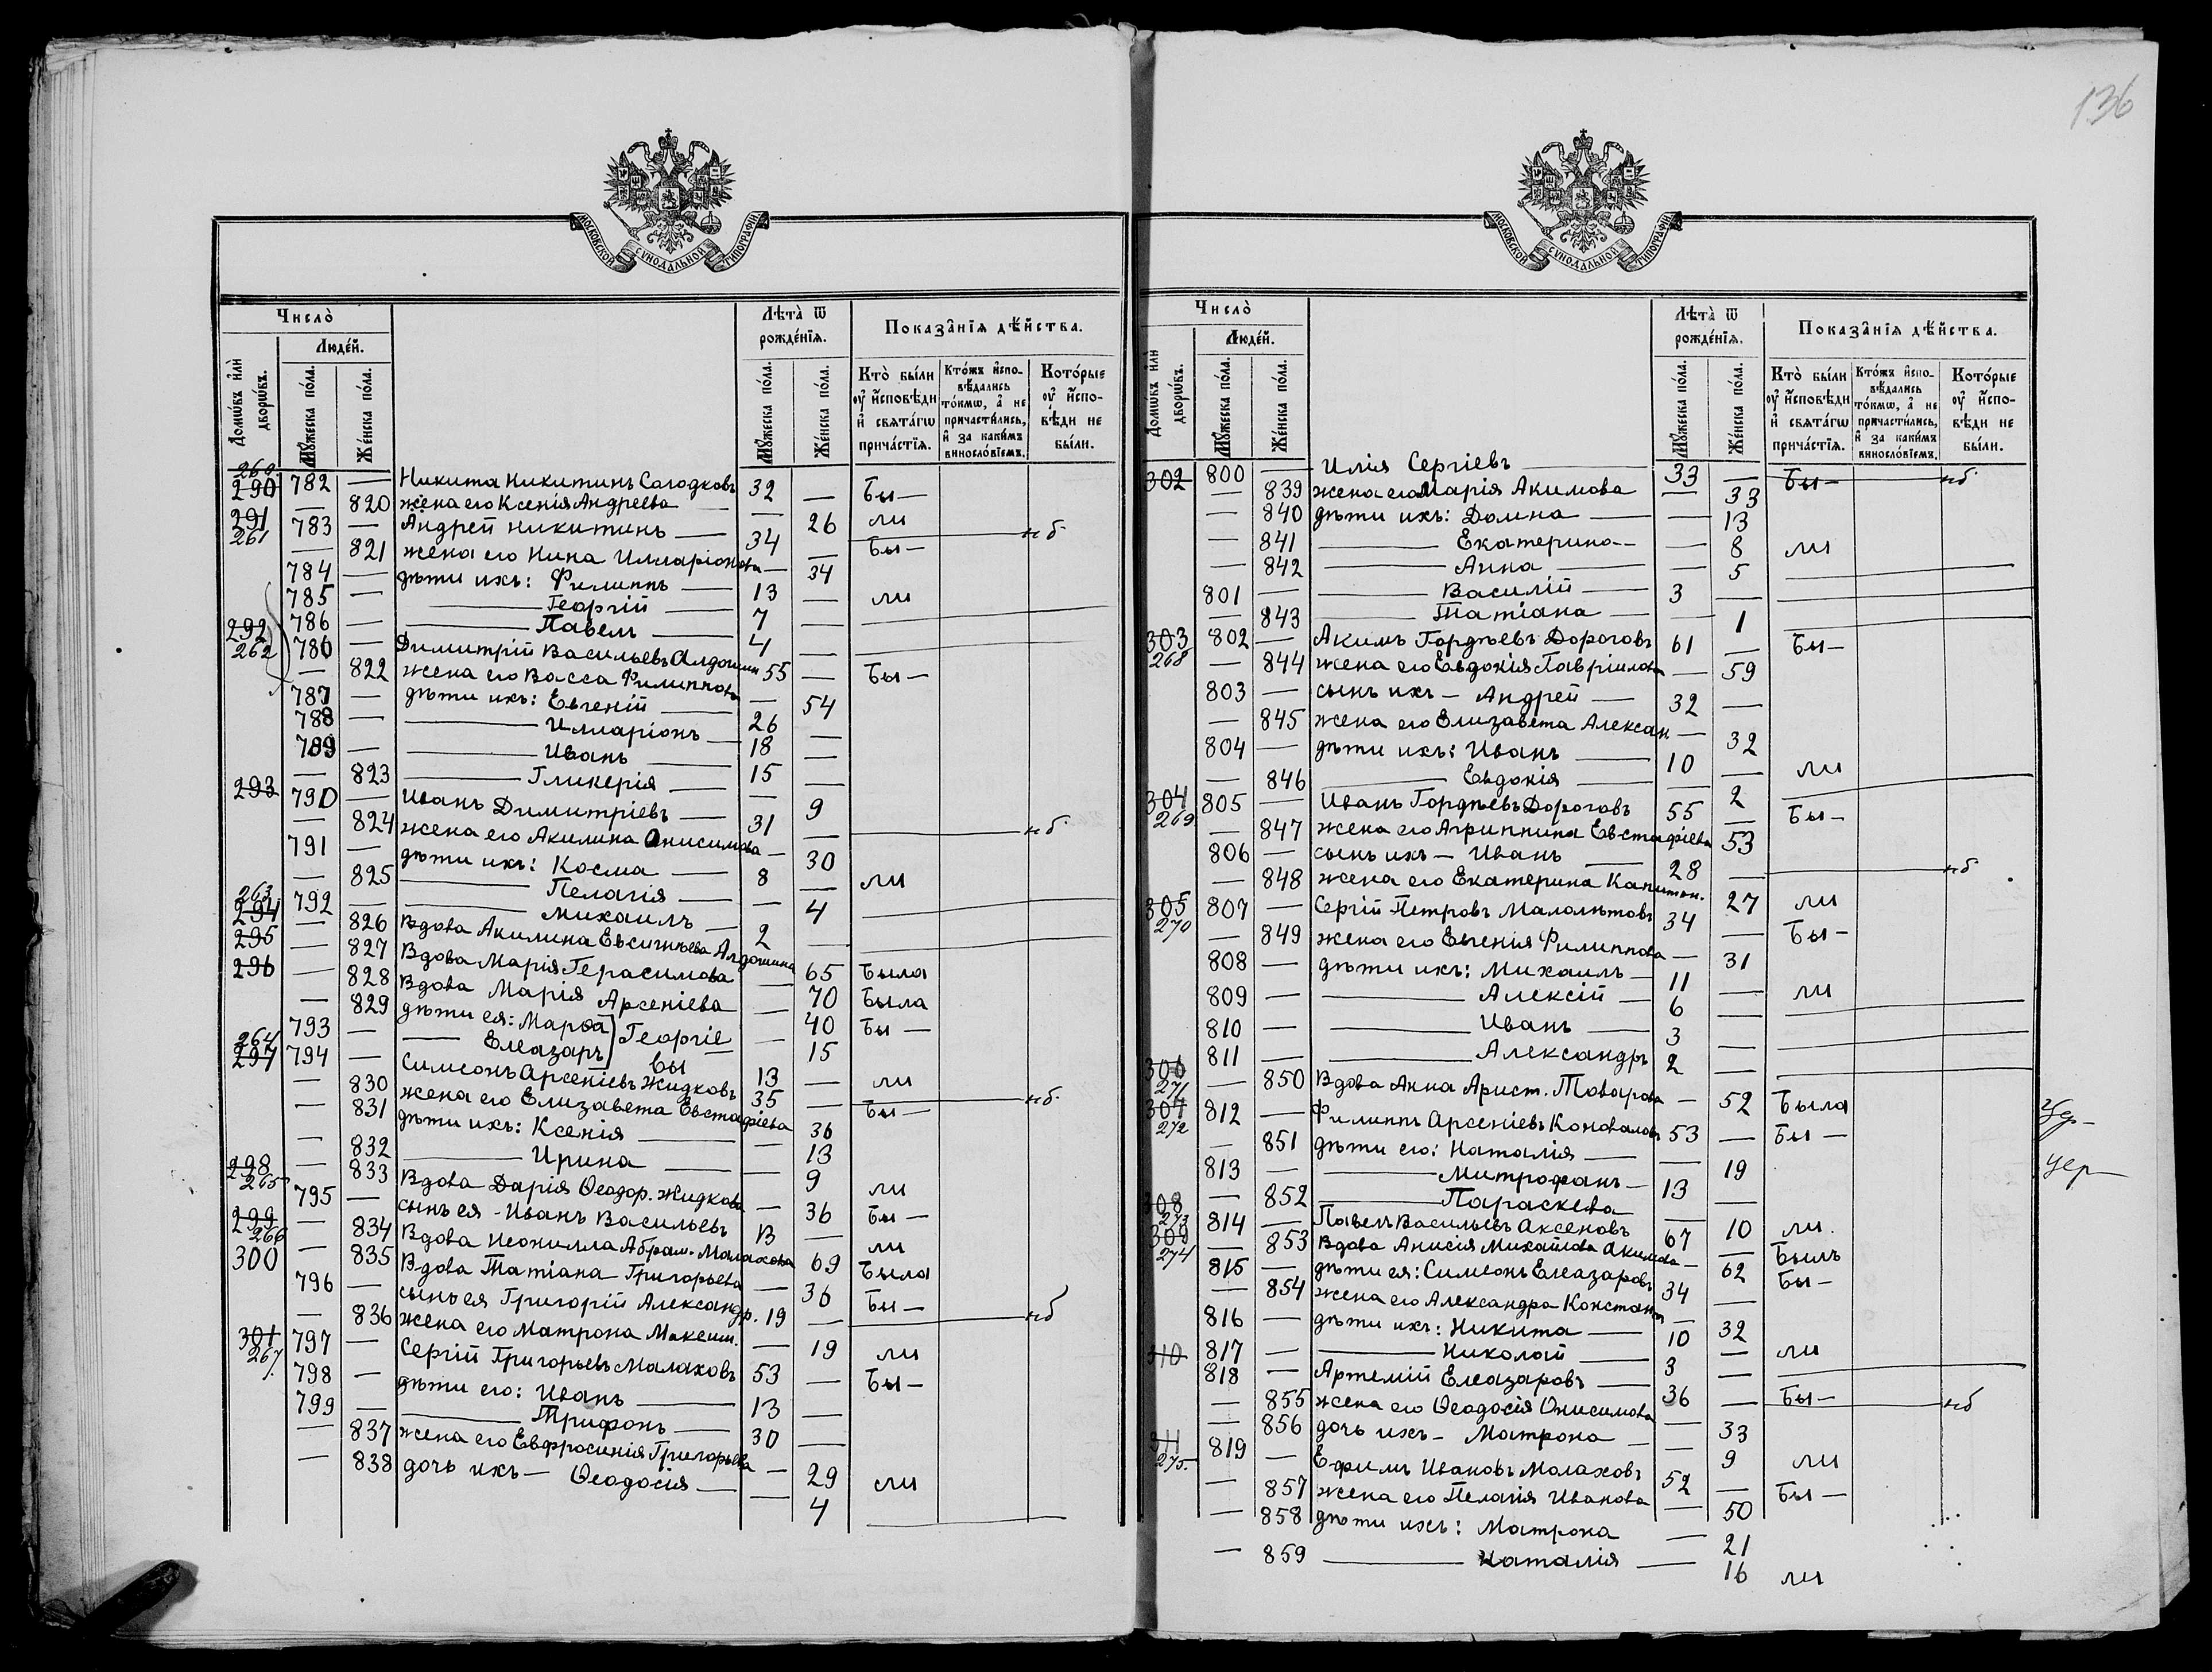 136
МОСКОВСКОЙ СѴНОДАЛЬНОЙ ТИПОГРАФІИ
Число̀
Людéй.
Домѡ́въ и҆лѝ дворѡ́въ.
Мꙋ́жеска по́ла.
Же́нска по́ла.
Лѣ́та ѿ рожде́нїѧ.
Мꙋ́жеска по́ла.
Же́нска по́ла.
Показа̑нїѧ дѣ́йства.
Кто̀ бы́ли ᲂу҆ и҆сповѣ́ди и҆ свѧта́гѡ прича́стїѧ.
Кто́жъ и҆спо-вѣ́дались то́кмѡ, а҆ не причасти́лись, и҆ за каки́мъ винослові́емъ.
Кото́рые ᲂу҆ и҆спо-вѣ́ди не бы́ли.
260 290 782 — Никита Никитинъ Солодковъ 32 — Бы—
— 820 жена его Ксенія Андреева — 26 ли
291 261 783 — Андрей Никитинъ — 34 — Бы— нб
— 821 жена его Нина Илларіонова — 34
784 — дѣти ихъ: Филиппъ — 13 — ли
785 — Георгій — 7 —
786 — Павелъ — 4 —
292 262 786 — Димитрій Васильевъ Алдошин 55 — Бы—
— 822 жена его Васса Филиппова — 54
787 — дѣти ихъ: Евгеній — 26 —
788 — Илларіонъ — 18 —
789 — Иванъ — 15 —
— 823 Гликерія — 9
293 790 — Иванъ Димитріевъ — 31 — нб.
— 824 жена его Акилина Онисимова — 30
791 — дѣти ихъ: Косма — 8 — ли
— 825 Пелагія — 4
792 — Михаилъ — 2 —
263 294 — 826 Вдова Акилина Евсигнѣева Алдошина 65 Была
295 — 827 Вдова Марія Герасимова — 70 Была
296 — 828 Вдова Марія Арсеніева — 40 Бы —
— 829 дѣти ея: Марѳа } Георгіе — 15
793 — Елеазаръ } вы — 13 — ли
264 297 794 — Симеонъ Арсеніевъ Жидковъ 35 — Бы — нб.
— 830 жена его Елизавета Евстафіева 36
— 831 дѣти ихъ: Ксенія — 13
— 832 Ирина — 9 ли
298 265 — 833 Вдова Дарія Ѳеодор. Жидкова — 36 Бы —
795 — сынъ ея - Иванъ Васильевъ 13 — ли
299 266 — 834 Вдова Неонилла Абрам. Малахова 69 Была
300 — 835 Вдова Татіана Григорьева — 36 Бы —
796 — сынъ ея Григорій Александр. 19 — нб
— 836 жена его Матрона Максим. — 19 ли
301 267. 797 — Сергій Григорьевъ Малаховъ 53 — Бы —
798 — дѣти его: Иванъ — 13 —
799 — Трифонъ — 30 —
— 837 жена его Евфросинія Григорьева — 29 ли
— 838 дочь ихъ — Ѳеодосія — 4
МОСКОВСКОЙ СѴНОДАЛЬНОЙ ТИПОГРАФІИ
Число̀
Людéй.
Домѡ́въ и҆лѝ дворѡ́въ.
Мꙋ́жеска по́ла.
Же́нска по́ла.
Лѣ́та ѿ рожде́нїѧ.
Мꙋ́жеска по́ла.
Же́нска по́ла.
Показа̑нїѧ дѣ́йства.
Кто̀ бы́ли ᲂу҆ и҆сповѣ́ди и҆ свѧта́гѡ прича́стїѧ.
Кто́жъ и҆спо-вѣ́дались то́кмѡ, а҆ не причасти́лись, и҆ за каки́мъ винослові́емъ.
Кото́рые ᲂу҆ и҆спо-вѣ́ди не бы́ли.
302 800 — Илія Сергіевъ — 33 — Бы — нб.
— 839 жена его Марія Акимова — 33
— 840 дѣти ихъ: Домна — 13
— 841 Екатерина — 8 ли
— 842 Анна — 5
801 — Василій — 3 —
— 843 Татіана — 1
303 268 802 — Акимъ Гордѣевъ Дороговъ 61 — Бы —
— 844 жена его Евдокія Гавріилова — 59
803 — сынъ ихъ — Андрей — 32 —
— 845 жена его Елизавета Алексан — 32
804 — дѣти ихъ: Иванъ — 10 — ли
— 846 Евдокія — 2
304 269 805 — Иванъ Гордѣевъ Дороговъ 55 — Бы —
— 847 жена его Агриппина Евстафіева 53
806 — сынъ ихъ — Иванъ — 28 — нб
— 848 жена его Екатерина Капитон. 27 ли
305 270 807 — Сергій Петровъ Малолѣтовъ 34 — Бы —
— 849 жена его Евгенія Филиппова — 31
808 — дѣти ихъ: Михаилъ — 11 — ли
809 — Алексій — 6 —
810 — Иванъ — 3 —
811 — Александръ 2 —
306 271 — 850 Вдова Анна Арист. Товарова — 52 Была
307 272 812 — Филиппъ Арсеніевъ Коноваловъ 53 — Бы —
— 851 дѣти его: Наталія — 19
813 — Митрофанъ — 13 —
— 852 Параскева — 10 ли.
308 273 814 — Павелъ Васильевъ Аксеновъ 67 — Былъ
309 274 — 853 Вдова Анисія Михайлова Акимова — 62 Бы —
815 — дѣти ея: Симеонъ Елеазаровъ 34 —
— 854 жена его Александра Констант — 32
816 — дѣти ихъ: Никита — 10 — ли
817 — Николай — 3 —
310 818 — Артемій Елеазаровъ — 36 — Бы — нб
— 855 жена его Ѳеодосія Онисимова — 33
— 856 дочь ихъ — Матрона — 9 ли
311 275. 819 — Ефимъ Ивановъ Малаховъ 52 — Бы —
— 857 жена его Пелагія Иванова — 50
— 858 дѣти ихъ: Матрона — 21
— 859 Наталія — 16 ли
цер—